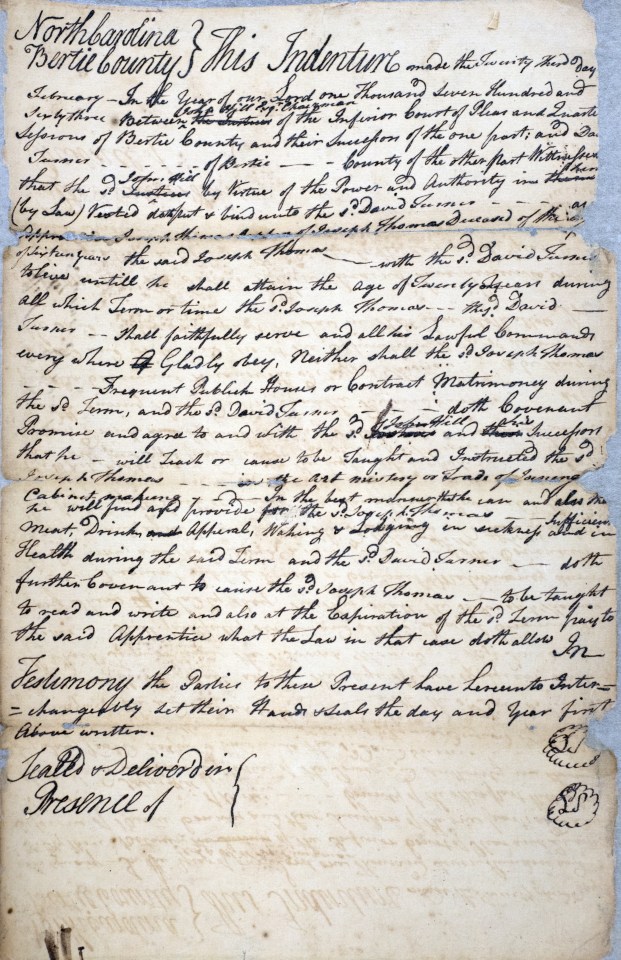 North Carolina
Bertie County } This Indenture made the Twenty third day
February — In the Year of our Lord one Thousand Seven Hundred and
Hill Esqr. Chairman
Sixty three Between the Justices of the Inferior Court of Pleas and Quarte
Sessions of Bertie County and their Successors of the one part; and Da
Turner — — — of Bertie — — County of the other part Witnesse
Hill
that the sd. Justices by Virtue of the Power and Authority in them
(by Law) Vested doth put & bind unto the sd. David Turner — — — as
Joseph Thomas of Joseph Thomas Deceased of the
of Sixteen years the said Joseph Thomas — with the sd. David Turner
to live untill he shall attain the Age of Twenty Years during
all which Term or time the sd. Joseph Thomas — the sd. David —
Turner — Shall faithfully serve and all his Lawful Commands
every where Gladly obey, Neither shall the sd. Joseph Thomas
— — — Frequent Publick Houses or Contract Matrimoney during
the sd. Term, and the sd. David Turner — — doth Covenant
Hill
Promise and agree to and with the sd. Justices and their Successors
that he — will Teach or cause to be Taught and Instructed the sd.
Joseph Thomas — — in the Art mistery or Trade of
Cabinet making — — In the best manner that he can and also the
he will find and provide for the sd. Joseph Thomas — Sufficien
Meat, Drink, and Apperal, Washing & Lodging in sickness and in
Health during the said Term and the sd. David Turner — doth
further Covenant to cause the sd. Joseph Thomas — to be taught
to read and write and also at the Expiration of the sd. Term pay to
the said Apprentice what the Law in that case doth allow In
Testimony the Parties to these Present have hereunto Inter=
=changeably set their Hands & Seals the day and Year first
Above written.
Sealed & Deliver'd in
Presence of